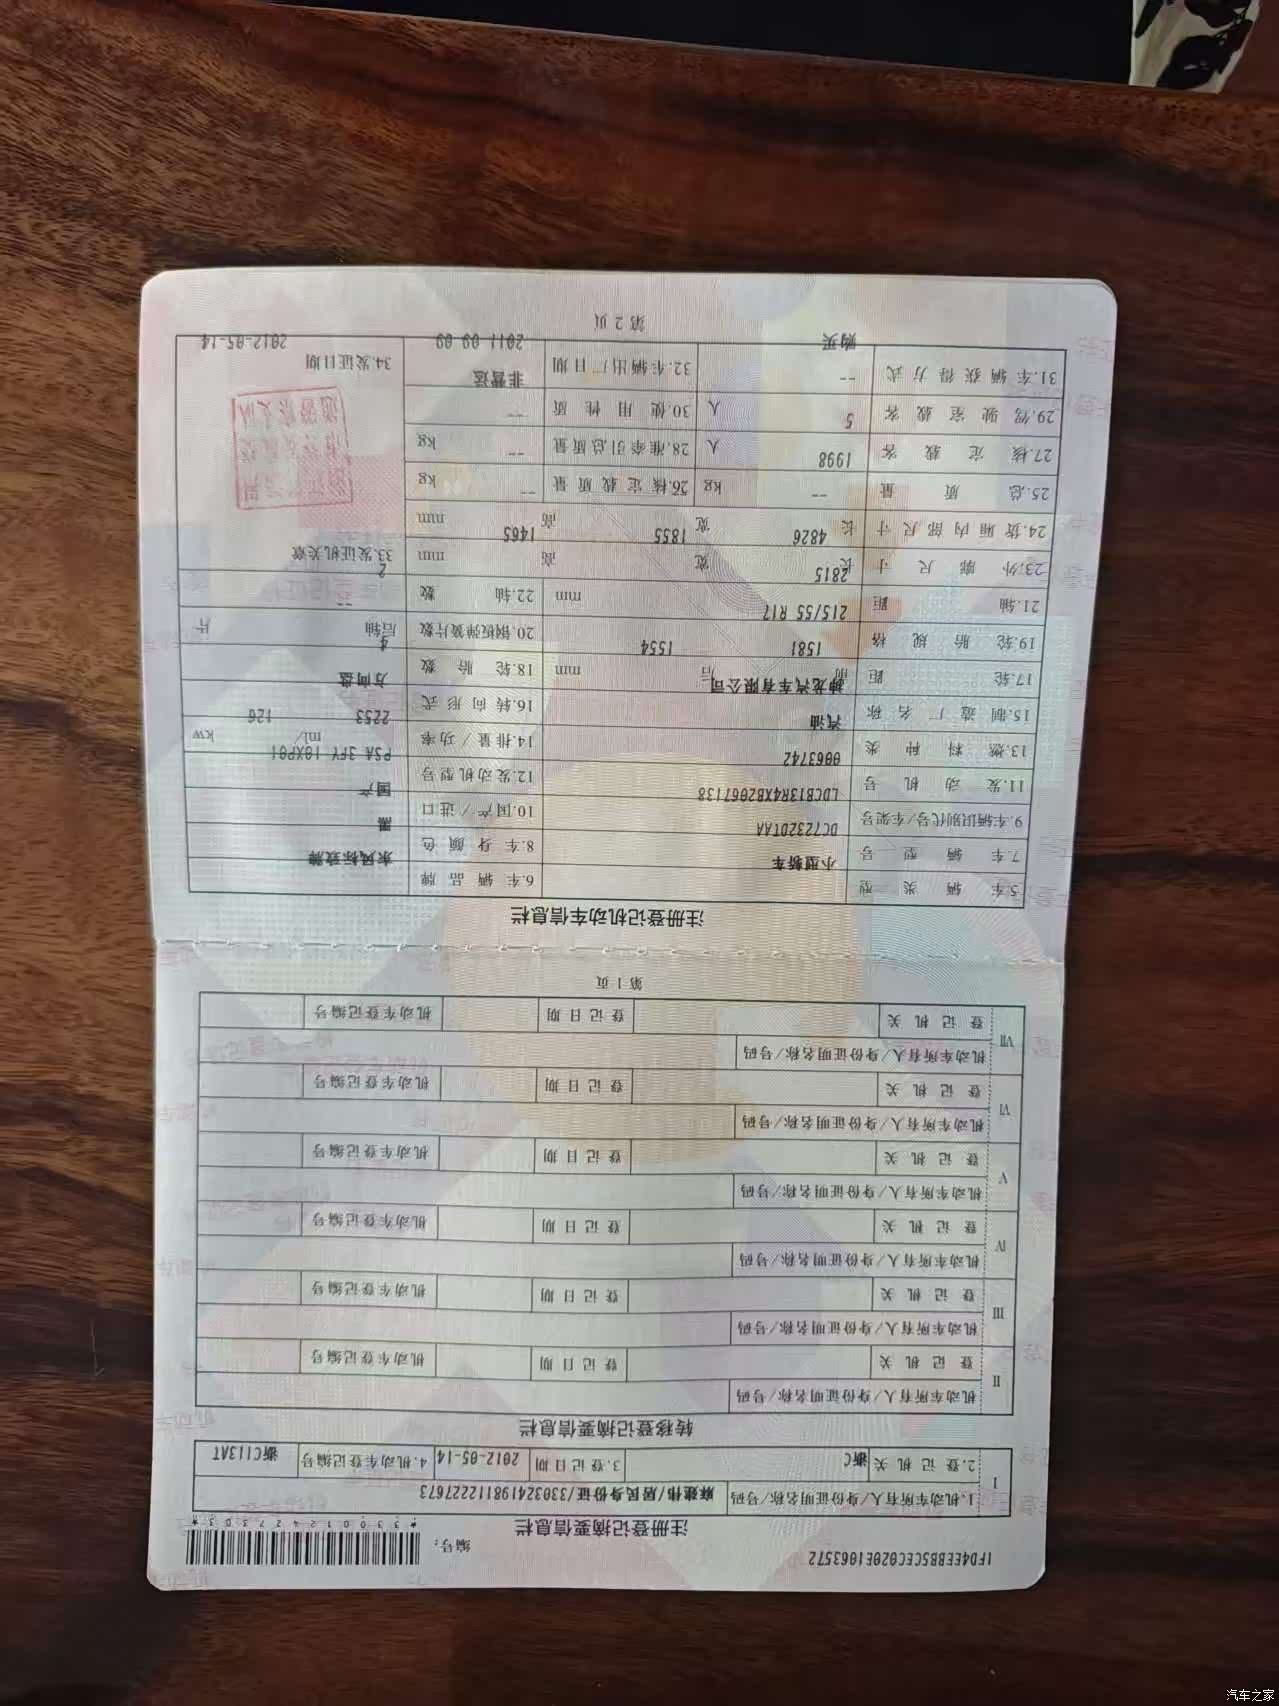 1FD4EEBB5CEC020E1063572
编号：
*330012427303*
注册登记摘要信息栏
I
1.机动车所有人/身份证明名称/号码 麻建伟/居民身份证/330324198112227673
2.登记机关 浙C 3.登记日期 2012-05-14 4.机动车登记编号 浙C113AT
转移登记摘要信息栏
II
机动车所有人/身份证明名称/号码
登记机关 登记日期 机动车登记编号
III
机动车所有人/身份证明名称/号码
登记机关 登记日期 机动车登记编号
IV
机动车所有人/身份证明名称/号码
登记机关 登记日期 机动车登记编号
V
机动车所有人/身份证明名称/号码
登记机关 登记日期 机动车登记编号
VI
机动车所有人/身份证明名称/号码
登记机关 登记日期 机动车登记编号
VII
机动车所有人/身份证明名称/号码
登记机关 登记日期 机动车登记编号
第 1 页
注册登记机动车信息栏
5.车辆类型 小型轿车 6.车辆品牌 东风标致牌
7.车辆型号 DC7232DTAA 8.车身颜色 黑
9.车辆识别代号/车架号 LDCB13R4XB2067138 10.国产/进口 国产
11.发动机号 0063742 12.发动机型号 PSA 3FY 10XP01
13.燃料种类 汽油 14.排量/功率 2253 ml/ 126 kw
15.制造厂名称 神龙汽车有限公司 16.转向形式 方向盘
17.轮距 前 1581 后 1554 mm 18.轮胎数 4
19.轮胎规格 215/55 R17 20.钢板弹簧片数 后轴 -- 片
21.轴距 2815 mm 22.轴数 2
23.外廓尺寸 长 4826 宽 1855 高 1465 mm
33.发证机关章
24.货厢内部尺寸 长 宽 高 mm
25.总质量 -- kg 26.核定载质量 -- kg
27.核定载客 1998 人 28.准牵引总质量 -- kg
29.驾驶室载客 5 人 30.使用性质 --
非营运
31.车辆获得方式 -- 32.车辆出厂日期
34.发证日期
购买 2011-09-09 2012-05-14
第 2 页
汽车之家